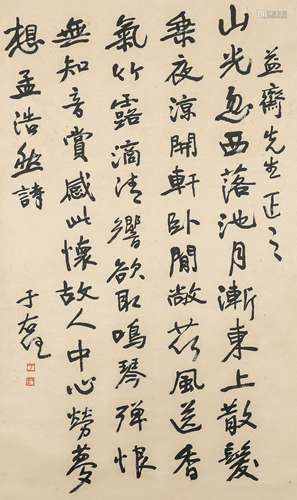 益齋先生正之
山光忽西落池月漸東上散髮
乘夜涼開軒臥閒敞荷風送香
氣竹露滴清響欲取鳴琴彈恨
無知音賞感此懷故人中心勞夢
想孟浩然詩
于右任